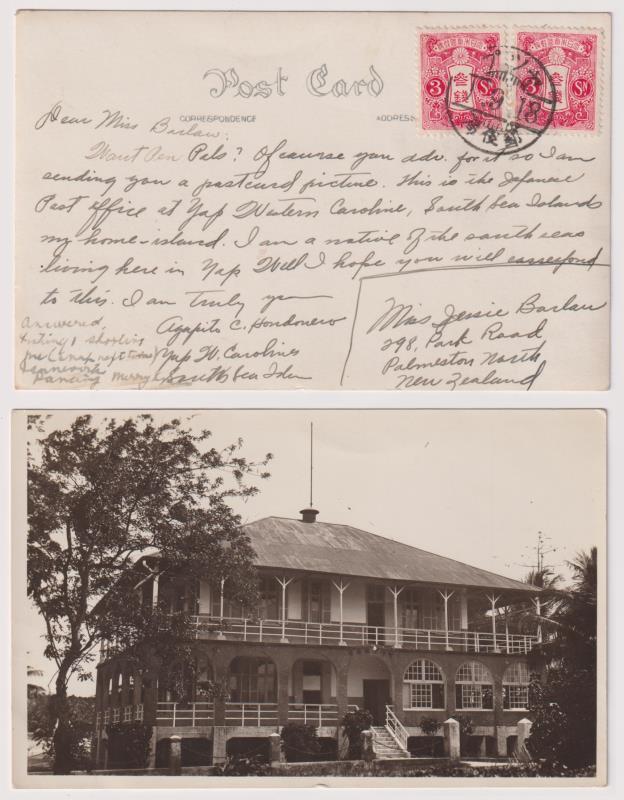 Post Card
CORRESPONDENCE
ADDRESS
3 SN
3 SN
18
Dear Miss Barlaw:
Want Pen Pals? Of course you adv. for it so I am
sending you a postcard picture. This is the Japanese
Post office at Yap Western Caroline, South Sea Islands
my home-island. I am a native of the south seas
living here in Yap. Well I hope you will correspond
to this. I am truly yours
Agapito C. Hondonero
Yap W. Carolines
South Sea Islan
Answered,
Dancing
Miss Jessie Barlaw
298, Park Road,
Palmeston North
New Zealand